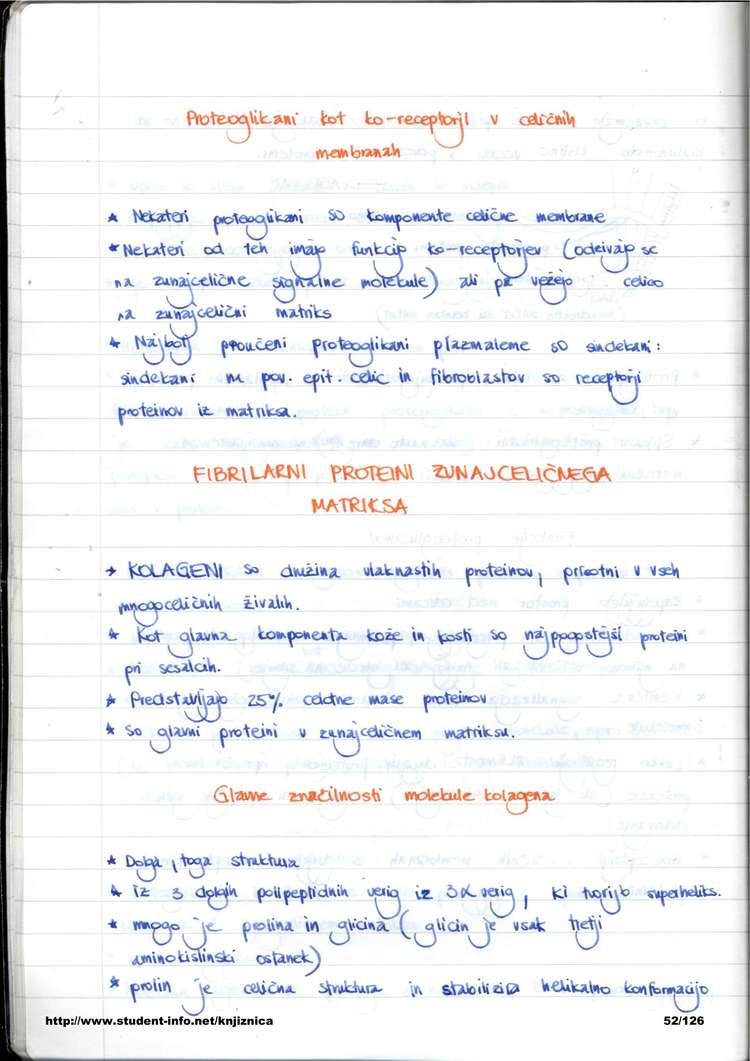 Proteoglikani kot ko-receptorji v celičnih
membranah
* Nekateri proteoglikani so komponente celične membrane
* Nekateri od teh imajo funkcijo ko-receptorjev (odzivajo se
na zunajcelične signalne molekule) ali pa vežejo celico
na zunajcelični matriks
* Najbolj proučeni proteoglikani plazmaleme so sindekani:
sindekani na pov. epit. celic in fibroblastov so receptorji
proteinov iz matriksa.
FIBRILARNI PROTEINI ZUNAJCELIČNEGA
MATRIKSA
→ KOLAGENI so družina vlaknastih proteinov, prisotni v vseh
mnogoceličnih živalih.
* Kot glavna komponenta kože in kosti so najpogostejši proteini
pri sesalcih.
* Predstavljajo 25% celotne mase proteinov
* So glavni proteini v zunajceličnem matriksu.
Glavne značilnosti molekule kolagena
* Dolga, toga struktura
* iz 3 dolgih polipeptidnih verig iz 3α verig, ki tvorijo superheliks.
* mnogo je prolina in glicina (glicin je vsak tretji
aminokislinski ostanek)
* prolin je celična struktura in stabilizira helikalno konformacijo
http://www.student-info.net/knjiznica 52/126